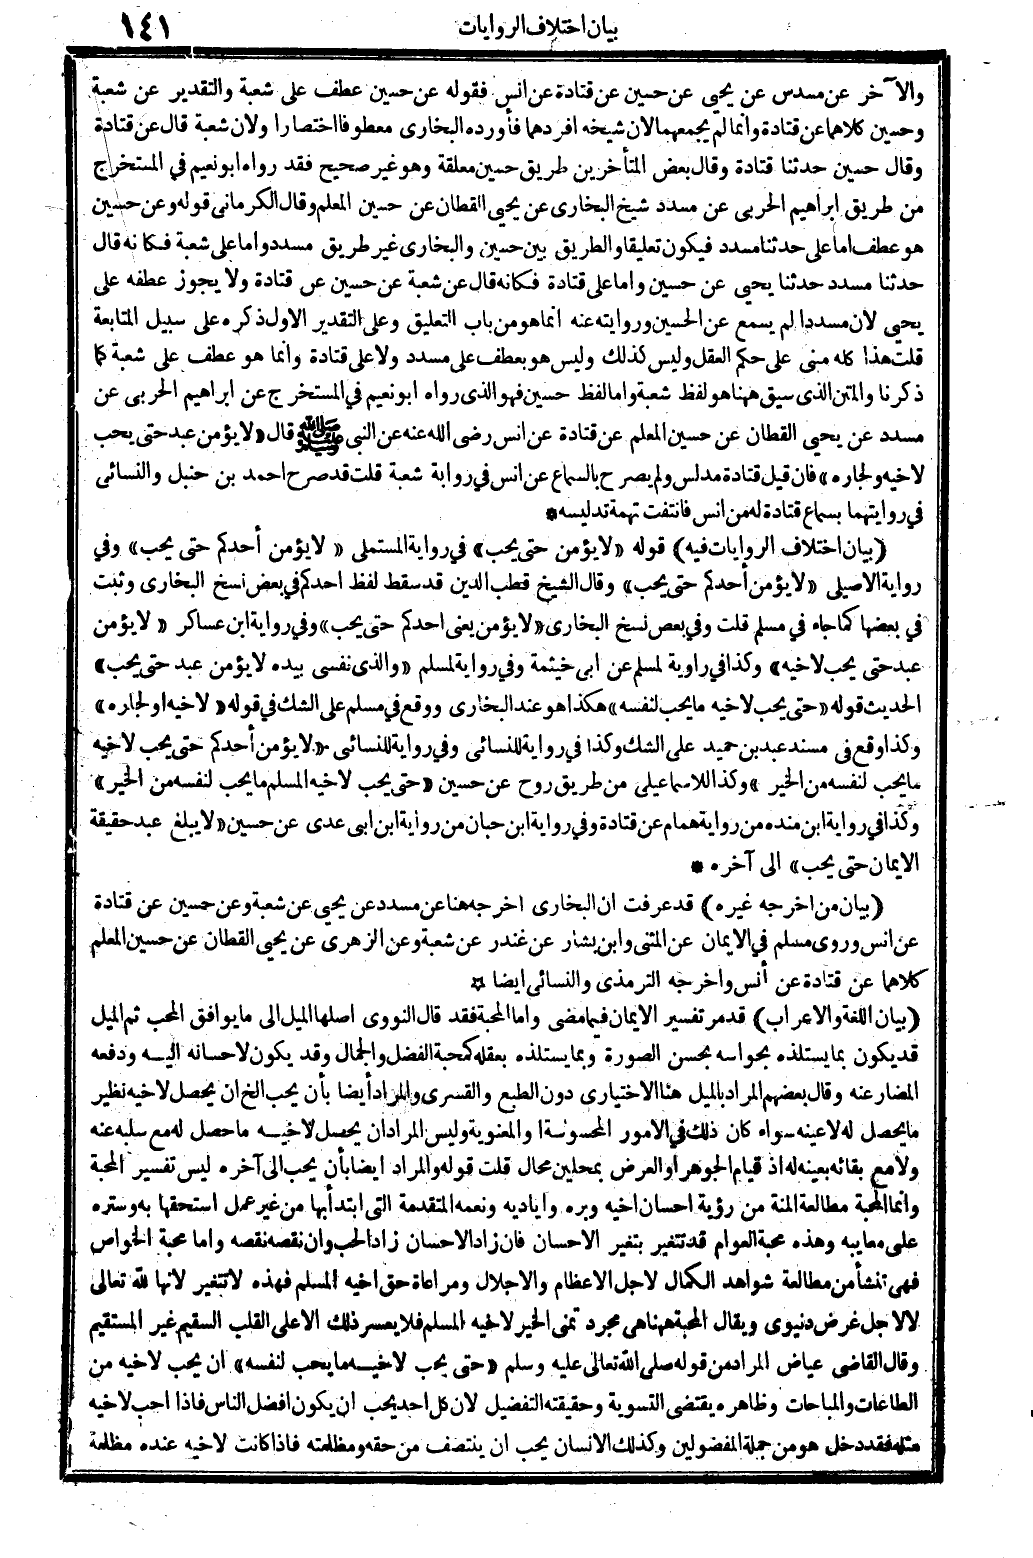 بيان اختلاف الروايات ١٤١
والآخر عن مسدس عن يحيى عن حسين عن قتادة عن انس فقوله عن حسين عطف على شعبة والتقدير عن شعبة
وحسين كلاهما عن قتادة وانما لم يجمعهما لان شيخه افردهما فأورده البخارى معطوفا اختصارا ولان شعبة قال عن قتادة
وقال حسين حدثنا قتادة وقال بعض المتأخرين طريق حسين معلقة وهو غير صحيح فقد رواه ابو نعيم في المستخرج
من طريق ابراهيم الحربى عن مسدد شيخ البخارى عن يحيى القطان عن حسين المعلم وقال الكرمانى قوله وعن حسين
هو عطف اما على حدثنا مسدد فيكون تعليقا والطريق بين حسين والبخارى غير طريق مسدد واما على شعبة فكانه قال
حدثنا مسدد حدثنا يحيى عن حسين واما على قتادة فكانه قال عن شعبة عن حسين عن قتادة ولا يجوز عطفه على
يحيى لان مسددا لم يسمع عن الحسين وروايته عنه انما هو من باب التعليق وعلى التقدير الاول ذكره على سبيل المتابعة
قلت هذا كله مبنى على حكم العقل وليس كذلك وليس هو بعطف على مسدد ولا على قتادة وانما هو عطف على شعبة كما
ذكرنا والمتن الذى سيق ههنا هو لفظ شعبة واما لفظ حسين فهو الذى رواه ابو نعيم في المستخرج عن ابراهيم الحربى عن
مسدد عن يحيى القطان عن حسين المعلم عن قتادة عن انس رضى الله عنه عن النبي ﷺ قال «لا يؤمن عبد حتى يحب
لاخيه ولجاره» فان قيل قتادة مدلس ولم يصرح بالسماع عن انس في رواية شعبة قلت قد صرح احمد بن حنبل والنسائى
في روايتهما بسماع قتادة له من انس فانتفت تهمة تدليسه *
(بيان اختلاف الروايات فيه) قوله «لا يؤمن حتى يحب» في رواية المستملى «لا يؤمن أحدكم حتى يحب» وفي
رواية الاصيلى «لا يؤمن أحدكم حتى يحب» وقال الشيخ قطب الدين قد سقط لفظ احدكم في بعض نسخ البخارى وثبت
في بعضها كما جاء في مسلم قلت وفي بعض نسخ البخارى «لا يؤمن يعنى احدكم حتى يحب» وفي رواية ابن عساكر «لا يؤمن
عبد حتى يحب لاخيه» وكذا في راوية لمسلم عن ابى خيثمة وفي رواية لمسلم «والذى نفسى بيده لا يؤمن عبد حتى يحب»
الحديث قوله «حتى يحب لاخيه ما يحب لنفسه» هكذا هو عند البخارى ووقع في مسلم على الشك في قوله «لاخيه او لجاره»
وكذا وقع فى مسند عبد بن حميد على الشك وكذا في رواية للنسائى وفي رواية للنسائى «لا يؤمن أحدكم حتى يحب لاخيه
ما يحب لنفسه من الخير» وكذا للاسماعيلى من طريق روح عن حسين «حتى يحب لاخيه المسلم ما يحب لنفسه من الخير»
وكذا في رواية ابن منده من رواية همام عن قتادة وفي رواية ابن حبان من رواية ابن ابى عدى عن حسين «لا يبلغ عبد حقيقة
الايمان حتى يحب» الى آخره *
(بيان من اخرجه غيره) قد عرفت ان البخارى اخرجه هنا عن مسدد عن يحيى عن شعبة وعن حسين عن قتادة
عن انس وروى مسلم في الايمان عن المثنى وابن بشار عن غندر عن شعبة وعن الزهرى عن يحيى القطان عن حسين المعلم
كلاهما عن قتادة عن أنس واخرجه الترمذى والنسائى ايضا *
(بيان اللغة والاعراب) قد مر تفسير الايمان فيما مضى واما المحبة فقد قال النووى اصلها الميل الى ما يوافق المحب ثم الميل
قد يكون بما يستلذه بحواسه بحسن الصورة وبما يستلذه بعقله كمحبة الفضل والجمال وقد يكون لاحسانه اليه ودفعه
المضار عنه وقال بعضهم المراد بالميل هنا الاختيارى دون الطبع والقسرى والمراد أيضا بأن يحب الخ ان يحصل لاخيه نظير
ما يحصل له لا عينه سواء كان ذلك في الامور المحسوسة او المعنوية وليس المراد ان يحصل لاخيه ما حصل له مع سلبه عنه
ولا مع بقائه بعينه له اذ قيام الجوهر او العرض بمحلين محال قلت قوله والمراد ايضا بأن يحب الى آخره ليس تفسير المحبة
وانما المحبة مطالعة المنة من رؤية احسان اخيه وبره واياديه ونعمه المتقدمة التى ابتدأ بها من غير عمل استحقها به وستره
على معايبه وهذه محبة العوام قد تتغير بتغير الاحسان فان زاد الاحسان زاد الحب وان نقصه نقصه واما محبة الخواص
فهى تنشأ من مطالعة شواهد الكمال لاجل الاعظام والاجلال ومراعاة حق اخيه المسلم فهذه لا تتغير لانها لله تعالى
لا لاجل غرض دنيوى ويقال المحبة ههنا هى مجرد تمنى الخير لاخيه المسلم فلا يعسر ذلك الا على القلب السقيم غير المستقيم
وقال القاضى عياض المراد من قوله صلى الله تعالى عليه وسلم «حتى يحب لاخيه ما يحب لنفسه» ان يحب لاخيه من
الطاعات والمباحات وظاهره يقتضى التسوية وحقيقته التفضيل لان كل احد يحب ان يكون افضل الناس فاذا احب لاخيه
مثله فقد دخل هو من جملة المفضولين وكذلك الانسان يحب ان ينتصف من حقه ومظلمته فاذا كانت لاخيه عنده مظلمة